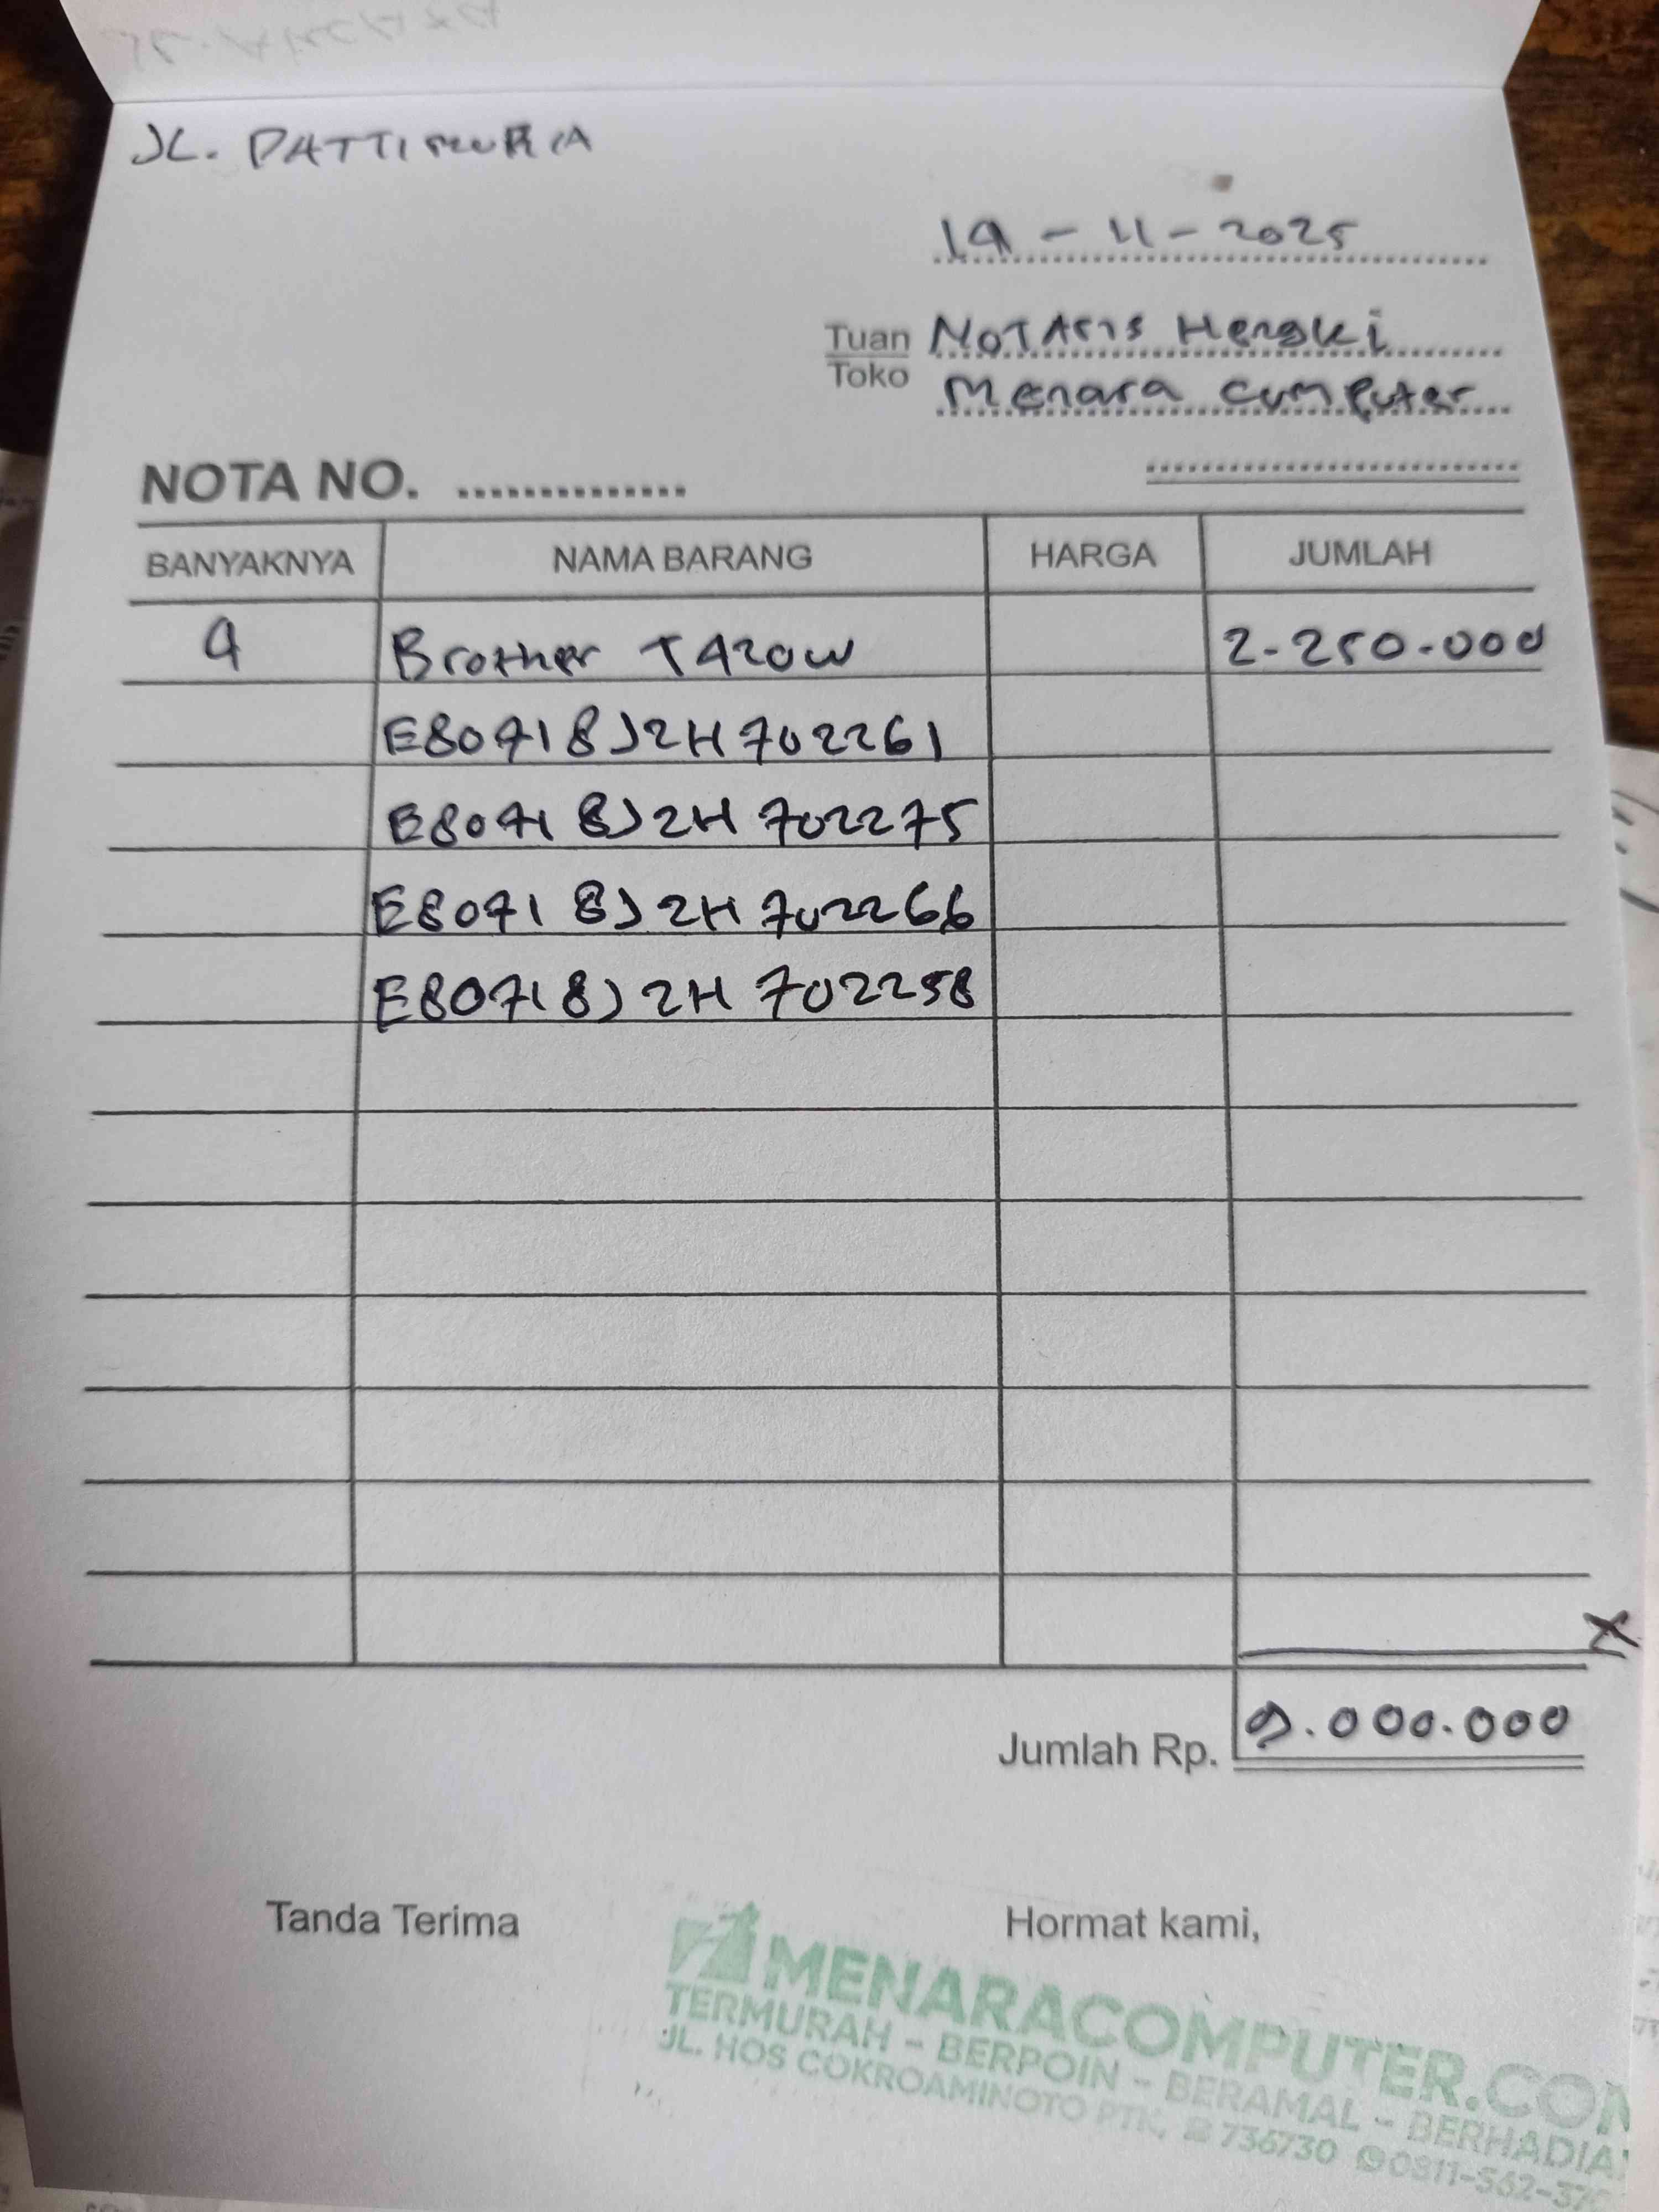 JL. PATTIMURA
19 - 11 - 2025
Tuan Notaris Hengki
Toko Menara Computer
NOTA NO. ..............
BANYAKNYA NAMA BARANG HARGA JUMLAH
4 Brother T420W 2.250.000
E80718J2H702261
E80718J2H702275
E80718J2H702266
E80718J2H702258
X
Jumlah Rp. 9.000.000
Tanda Terima Hormat kami,
MENARACOMPUTER.COM
TERMURAH - BERPOIN - BERAMAL - BERHADIA
JL. HOS COKROAMINOTO PTK, ☎ 736730 0811-562-37